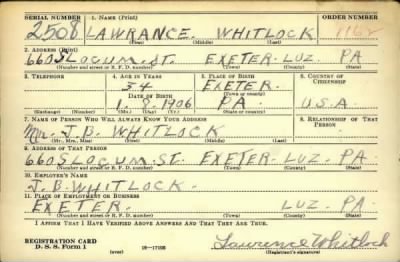 SERIAL NUMBER 1. NAME (Print) ORDER NUMBER
2508 LAWRANCE. WHITLOCK
(First) (Middle) (Last)
2. ADDRESS (Print)
660 SLOCUM. ST. EXETER. LUZ. PA
(Number and street or R. F. D. number) (Town) (County) (State)
3. TELEPHONE 4. AGE IN YEARS 5. PLACE OF BIRTH 6. COUNTRY OF CITIZENSHIP
34 EXETER.
DATE OF BIRTH (Town or county)
1. 8. 1906 PA. U.S.A
(Exchange) (Number) (Mo.) (Day) (Yr.) (State or country)
7. NAME OF PERSON WHO WILL ALWAYS KNOW YOUR ADDRESS 8. RELATIONSHIP OF THAT PERSON
J. B. WHITLOCK
(Mr., Mrs., Miss) (First) (Middle) (Last)
9. ADDRESS OF THAT PERSON
660 SLOCUM. ST. EXETER. LUZ. PA.
(Number and street or R. F. D. number) (Town) (County) (State)
10. EMPLOYER'S NAME
J. B. WHITLOCK.
11. PLACE OF EMPLOYMENT OR BUSINESS
EXETER. LUZ. PA.
(Number and street or R. F. D. number) (Town) (County) (State)
I AFFIRM THAT I HAVE VERIFIED ABOVE ANSWERS AND THAT THEY ARE TRUE.
REGISTRATION CARD
D. S. S. Form 1 (over) 16—17105 Lawrence Whitlock
(Registrant's signature)